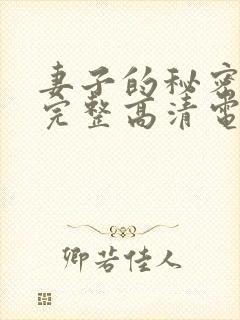 妻子的秘密
完整高清電
卿若佳人